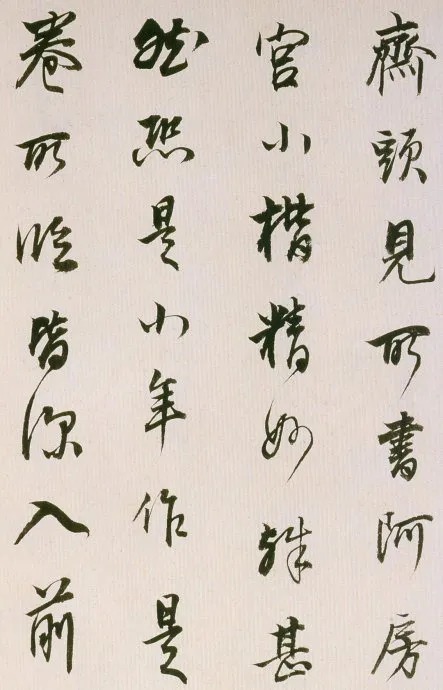 齋頭見所書阿房
宮小楷精妙殊甚
然恐是少年作是
卷所臨皆深入前